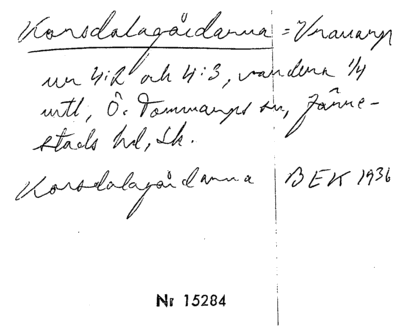 Korsdalagårdarna = Vranarp
nr 4:2 och 4:3, vardera 1/4
mtl, Ö. Tommarps sn, Järre-
stads hd, Sk.
Korsdalagårdarna BEK 1936
Nr 15284